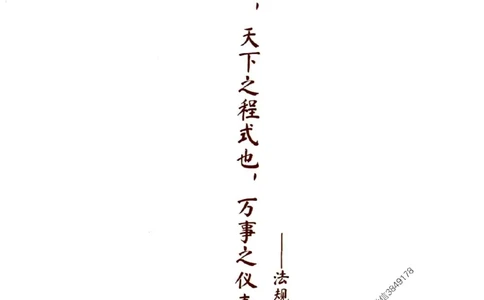 ，天下之程式也，万事之仪
——法规
信3849178